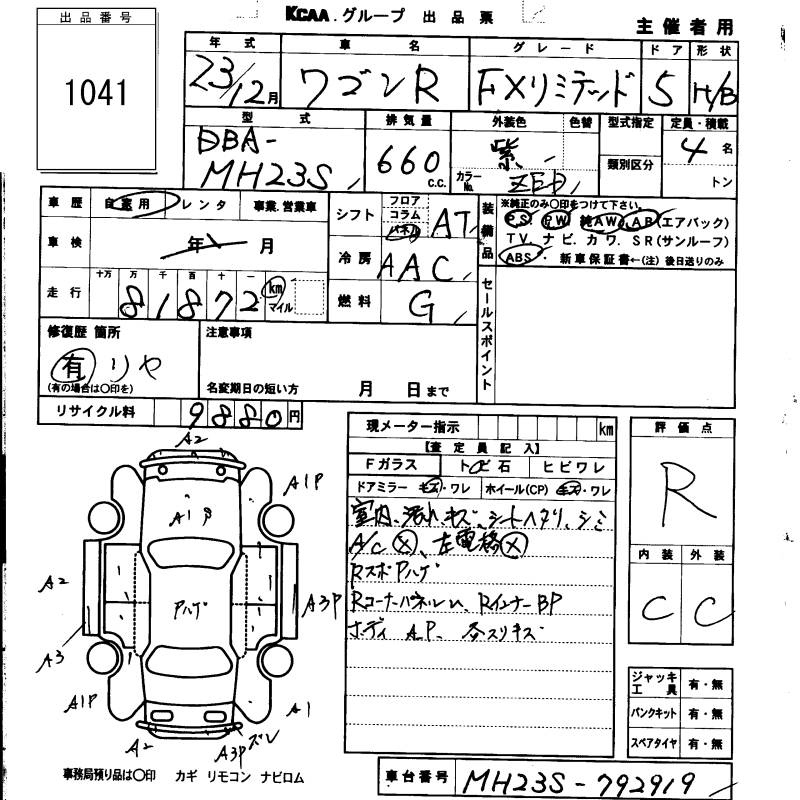 出品番号
1041
KCAA.グループ 出品票
主催者用
年式 車名 グレード ドア 形状
23/12月 ワゴンR FXリミテッド 5 H/B
型式 排気量 外装色 色替 型式指定 定員・積載
DBA-
MH23S 660 c.c. 紫 カラーNo. ZED 類別区分 4名
トン
車歴 自家用 レンタ 事業.営業車
車検 年 月
走行 十万 万 千 百 十 一
81872 km マイル
シフト フロア コラム パネル AT
冷房 AAC
燃料 G
装備品 ※純正のみ○印をつけて下さい。
P.S. P.W 純AW. AB(エアバック)
TV. ナビ. カワ. SR(サンルーフ)
ABS・ 新車保証書←(注)後日送りのみ
セールスポイント
修復歴 箇所
有 リヤ
(有の場合は○印を)
注意事項
名変期日の短い方 月 日まで
リサイクル料 9880円
現メーター指示 km
【査定員記入】
Fガラス トビ石 ヒビワレ
ドアミラー キズ・ワレ ホイール(CP) キズ・ワレ
室内、汚れ、キズ、シートヘタリ、シミ
A/C X、左電格X
RスポPハゲ
Rコーナーパネル Rインナー BP
ボディ AP、各スリキズ
評価点
R
内装 外装
C C
ジャッキ工具 有・無
パンクキット 有・無
スペアタイヤ 有・無
A2
A1P
A1P
A2
A3P
Pハゲ
A3
A1P
A1
A2
A3P ズレ
事務局預り品は○印 カギ リモコン ナビロム
車台番号 MH23S-792919